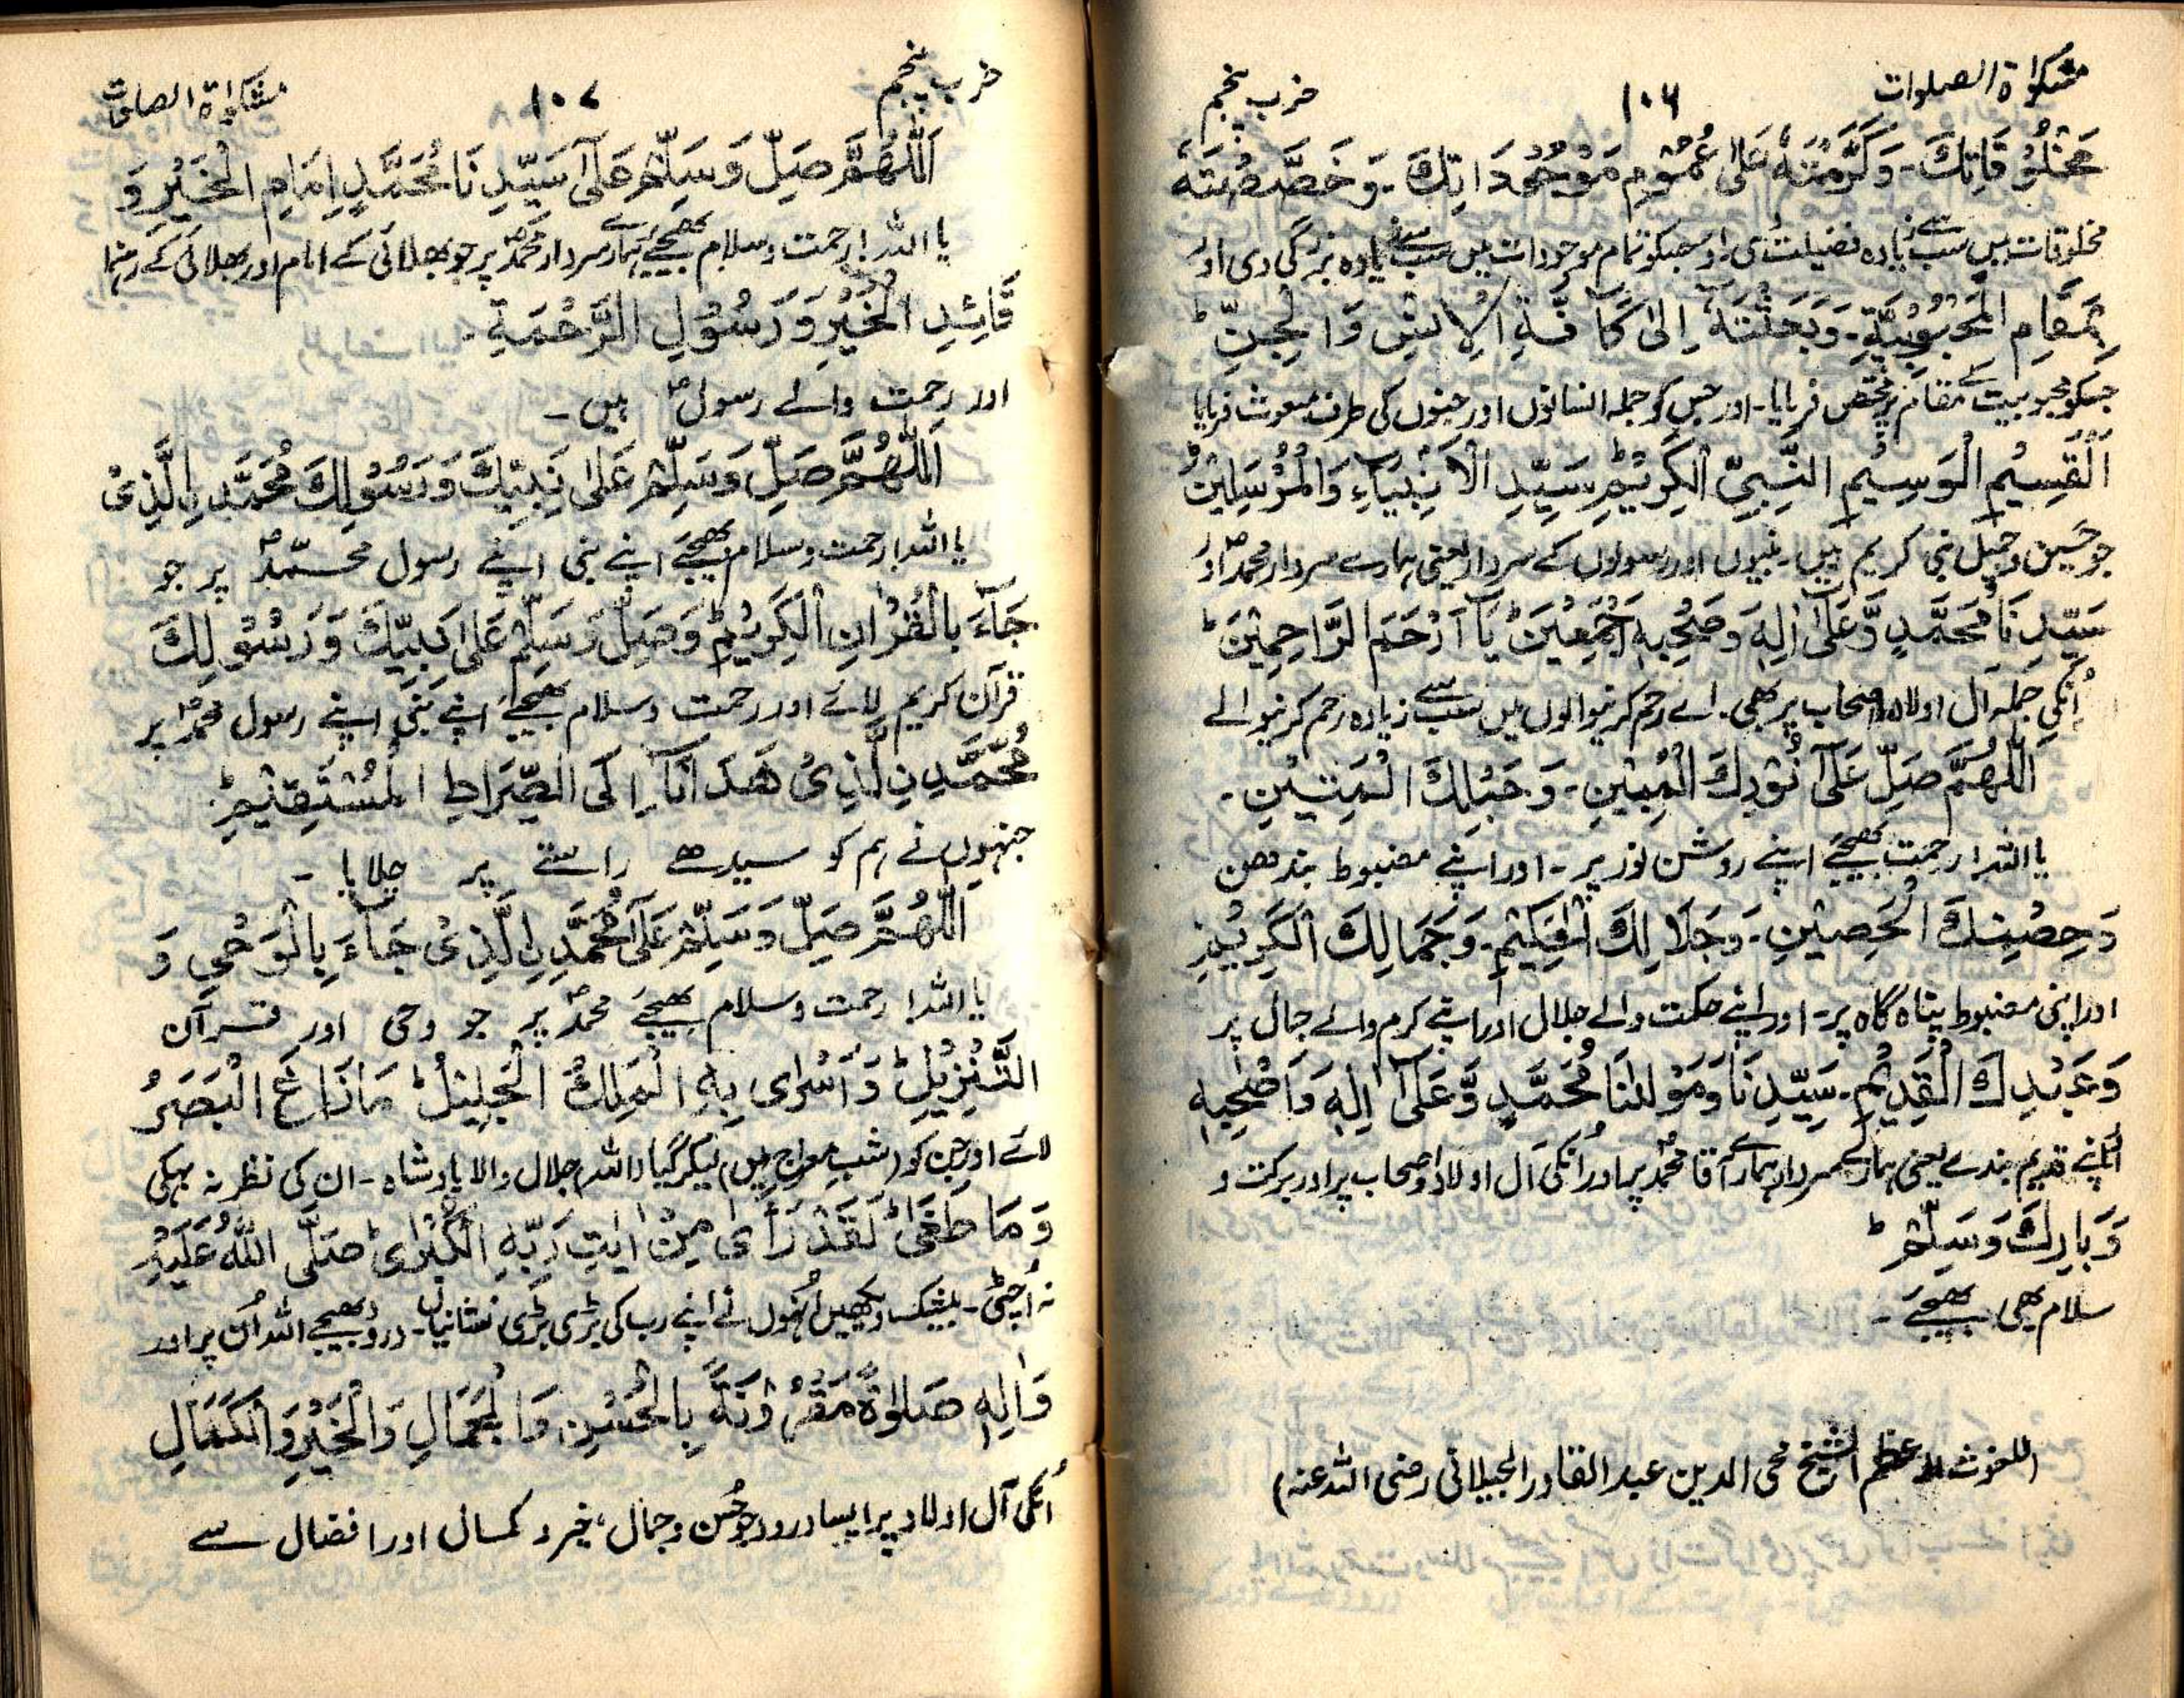 مشکوٰۃ الصلوات ۱۰۶ حزب پنجم
مَخْلُوْقَاتِكَ۔ وَكَرَّمْتَهٗ عَلٰى عُمُوْمِ مَوْجُوْدَاتِكَ۔ وَخَصَّصْتَهٗ
مخلوقات میں سب سے زیادہ فضیلت دی۔ اور جسکو تمام موجودات میں سب سے زیادہ بزرگی دی اور
بِمَقَامِ الْمَحْبُوْبِيَّةِ۔ وَبَعَثْتَهٗٓ اِلٰى كَآفَّةِ الْاِنْسِ وَالْجِنِّ ؕ
جسکو محبوبیت کے مقام پر مختص فرمایا۔ اور جس کو جملہ انسانوں اور جنوں کی طرف مبعوث فرمایا
اَلْقَسِيْمِ الْوَسِيْمِ النَّبِيِّ الْكَرِيْمِ سَيِّدِ الْاَنْبِيَآءِ وَالْمُرْسَلِيْنَ
جو حسین و جمیل نبی کریم ہیں۔ نبیوں اور رسولوں کے سردار یعنی ہمارے سردار محمدؐ اور
سَيِّدِنَا مُحَمَّدٍ وَّعَلٰٓى اٰلِهٖ وَصَحْبِهٖٓ اَجْمَعِيْنَ ؕ يَآ اَرْحَمَ الرَّاحِمِيْنَ ؕ
اُنکی جملہ آل اولاد اصحاب پر بھی۔ اے رحم کرنیوالوں میں سب سے زیادہ رحم کرنیوالے
اَللّٰهُمَّ صَلِّ عَلٰى نُوْرِكَ الْمُبِيْنِ۔ وَحَبْلِكَ الْمَتِيْنِ۔
یا اللہ! رحمت بھیجیے اپنے روشن نور پر۔ اور اپنے مضبوط بندھن
وَحِصْنِكَ الْحَصِيْنِ۔ وَجَلَالِكَ الْحَكِيْمِ۔ وَجَمَالِكَ الْكَرِيْمِ
اور اپنی مضبوط پناہ گاہ پر۔ اور اپنے حکمت والے جلال اور اپنے کرم والے جمال پر
وَعَبْدِكَ الْقَدِيْمِ۔ سَيِّدِنَا وَمَوْلٰنَا مُحَمَّدٍ وَّعَلٰٓى اٰلِهٖ وَاَصْحٰبِهٖ
اپنے قدیم بندے یعنی ہمارے سردار ہمارے آقا محمدؐ پر اور اُنکی آل اولاد و اصحاب پر اور برکت و
وَبَارِكْ وَسَلِّمْ ؕ
سلام بھی بھیجیے۔
(للغوث الاعظم الشیخ محی الدین عبد القادر الجیلانی رضی اللہ عنہ)
حزب پنجم ۱۰۷ مشکوٰۃ الصلوات
اَللّٰهُمَّ صَلِّ وَسَلِّمْ عَلٰى سَيِّدِنَا مُحَمَّدٍ اِمَامِ الْخَيْرِ وَ
یا اللہ! رحمت و سلام بھیجیے ہمارے سردار محمدؐ پر جو بھلائی کے امام اور بھلائی کے رہنما
قَآئِدِ الْخَيْرِ وَرَسُوْلِ الرَّحْمَةِ۔
اور رحمت والے رسولؐ ہیں۔
اَللّٰهُمَّ صَلِّ وَسَلِّمْ عَلٰى نَبِيِّكَ وَرَسُوْلِكَ مُحَمَّدِ ۨالَّذِىْ
یا اللہ! رحمت و سلام بھیجیے اپنے نبی اپنے رسول محمّدؐ پر جو
جَآءَ بِالْقُرْاٰنِ الْكَرِيْمِ ؕ وَصَلِّ وَسَلِّمْ عَلٰى نَبِيِّكَ وَرَسُوْلِكَ
قرآن کریم لائے اور رحمت و سلام بھیجیے اپنے نبی اپنے رسول محمدؐ پر
مُحَمَّدِ نِ الَّذِىْ هَدَانَآ اِلَى الصِّرَاطِ الْمُسْتَقِيْمِ ؕ
جنہوں نے ہم کو سیدھے راستے پر چلایا۔
اَللّٰهُمَّ صَلِّ وَسَلِّمْ عَلٰى مُحَمَّدِ ۨالَّذِىْ جَآءَ بِالْوَحْىِ وَ
یا اللہ! رحمت و سلام بھیجیے محمدؐ پر جو وحی اور قرآن
التَّنْزِيْلِ ؕ وَاَسْرٰى بِهِ الْمَلِكُ الْجَلِيْلُ ؕ مَا زَاغَ الْبَصَرُ
لائے اور جن کو (شب معراج میں) لیکر گیا (اللہ) جلال والا بادشاہ۔ ان کی نظر نہ بہکی
وَمَا طَغٰى ؕ لَقَدْ رَاٰى مِنْ اٰيٰتِ رَبِّهِ الْكُبْرٰى ؕ صَلَّى اللّٰهُ عَلَيْهِ
نہ اُچٹی۔ بیشک دیکھیں اُنہوں نے اپنے رب کی بڑی بڑی نشانیاں۔ درود بھیجے اللہ اُن پر اور
وَاٰلِهٖ صَلٰوةً مَّقْرُوْنَةً بِالْحُسْنِ وَالْجَمَالِ وَالْخَيْرِ وَالْكَمَالِ
اُنکی آل اولاد پر ایسا درود جو حُسن و جمال، خیر و کمال اور افضال سے